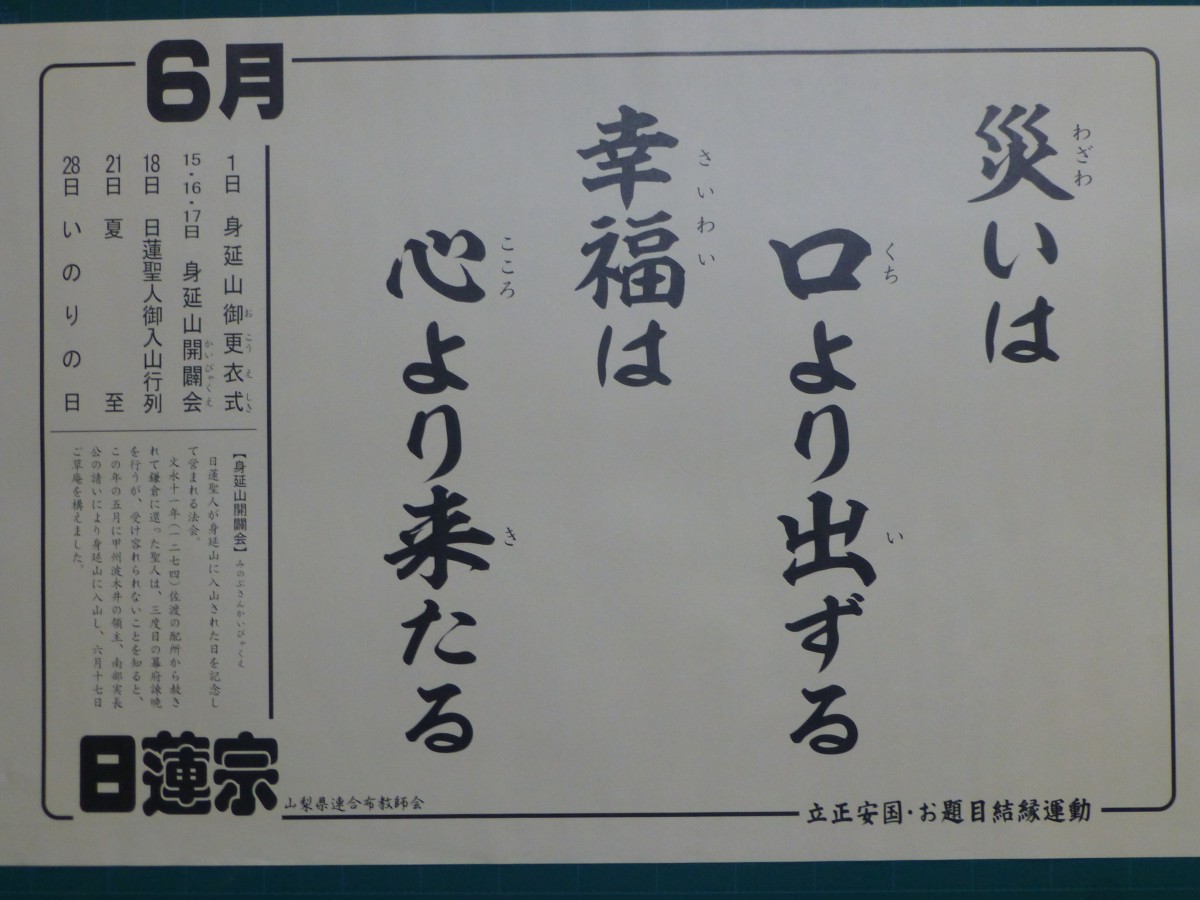 災いは
口より出ずる
幸福は
心より来たる
6月
1日 身延山御更衣式
15・16・17日 身延山開闢会
18日 日蓮聖人御入山行列
21日 夏至
28日 いのりの日
【身延山開闢会】みのぶさんかいびゃくえ
日蓮聖人が身延山に入山された日を記念し
て営まれる法会。
文永十一年(一二七四)佐渡の配所から赦さ
れて鎌倉に還った聖人は、三度目の幕府諫暁
を行うが、受け容れられないことを知ると、
この年の五月に甲州波木井の領主、南部実長
公の請いにより身延山に入山し、六月十七日
ご草庵を構えました。
日蓮宗
山梨県連合布教師会
立正安国・お題目結縁運動